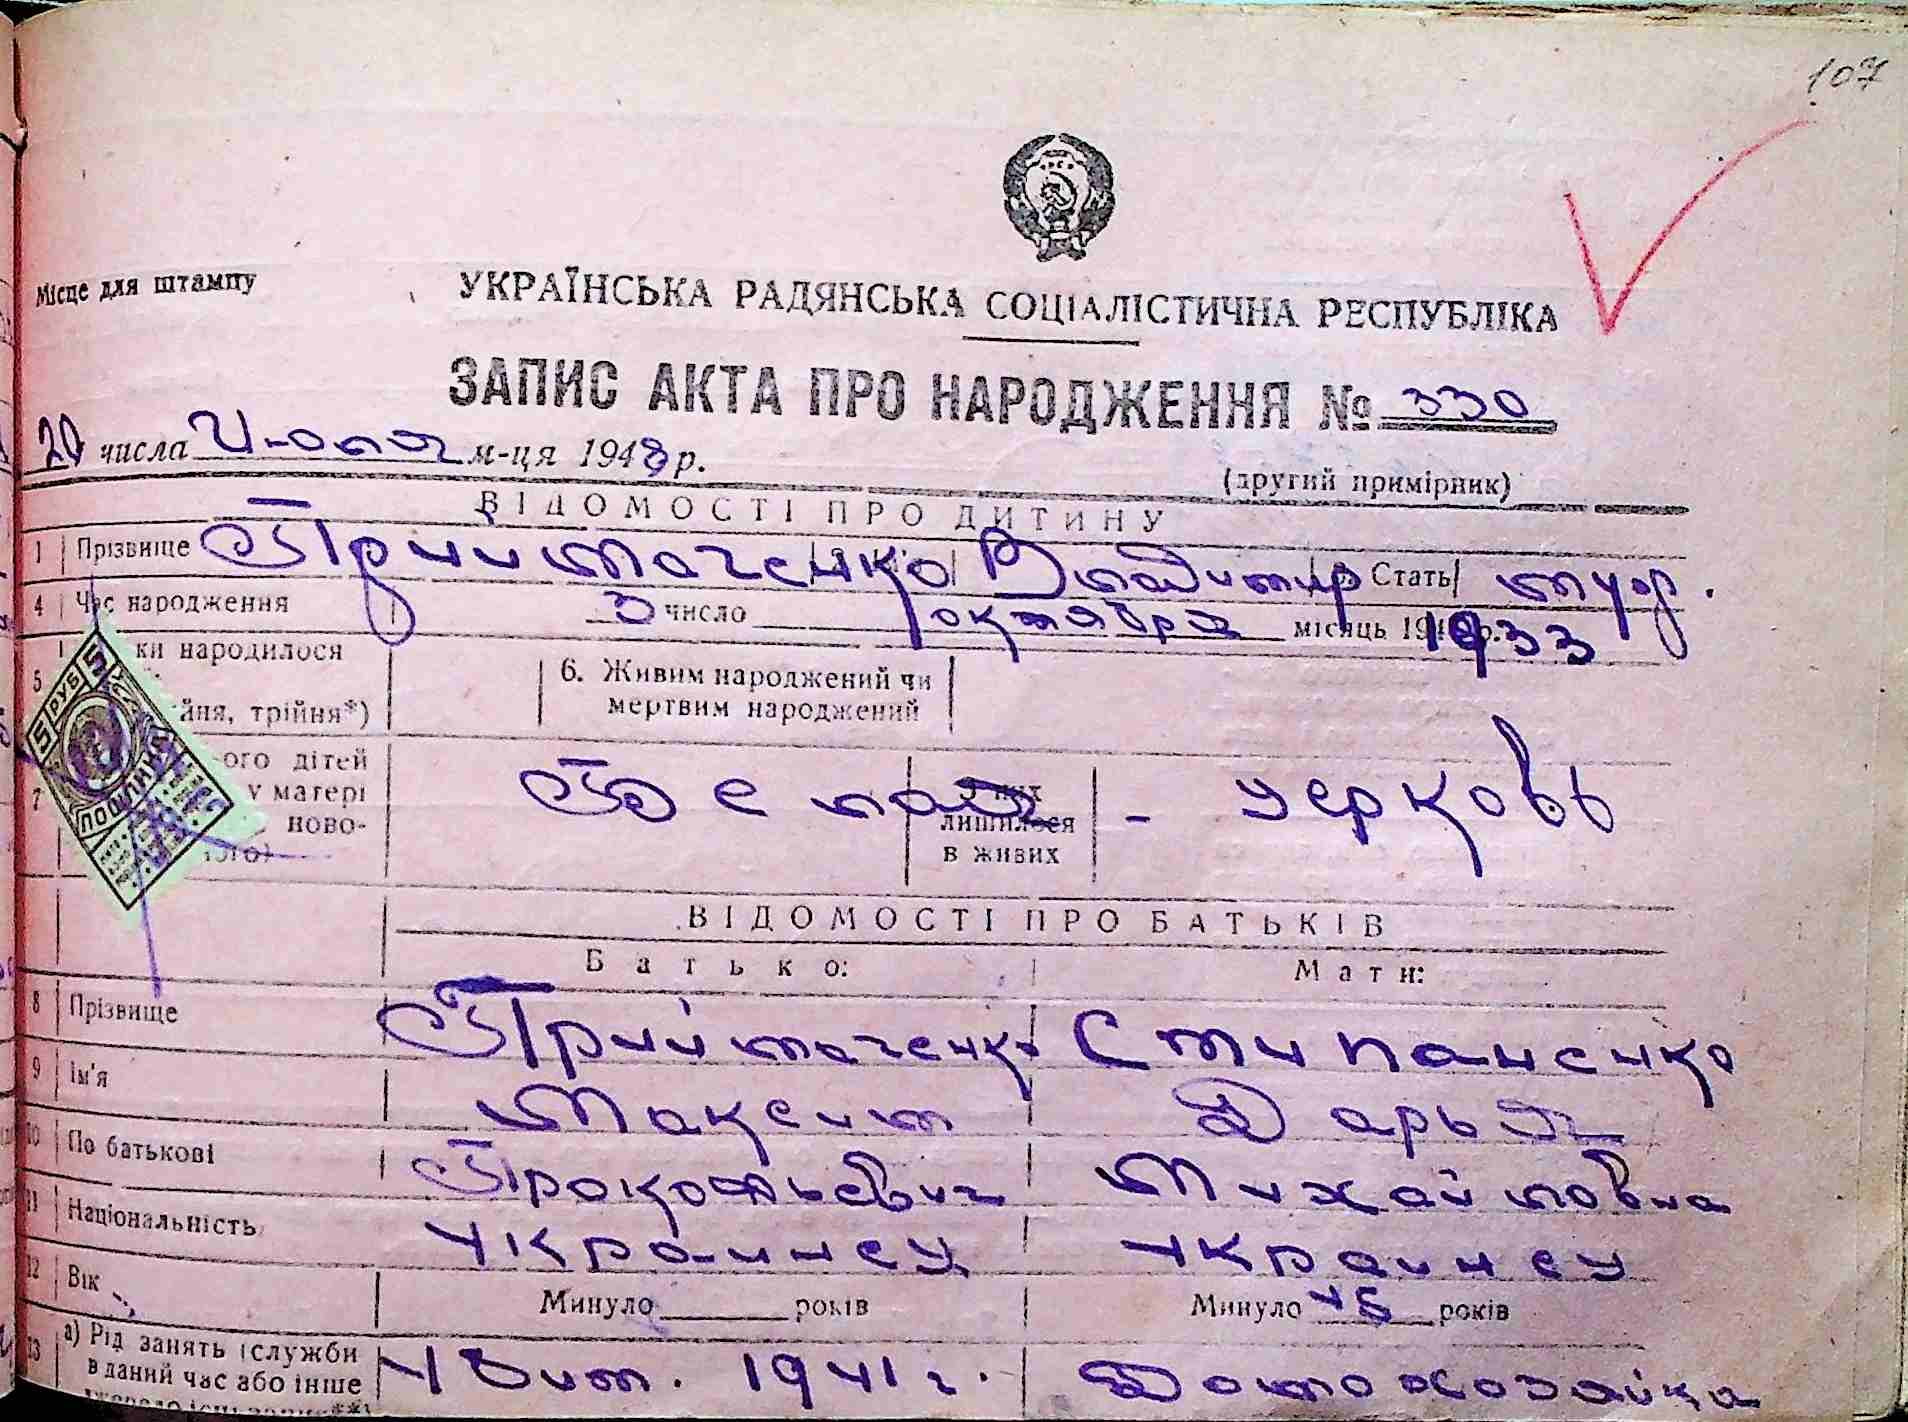 107
Місце для штампу
УКРАЇНСЬКА РАДЯНСЬКА СОЦІАЛІСТИЧНА РЕСПУБЛІКА
ЗАПИС АКТА ПРО НАРОДЖЕННЯ № 330
числа Июля м-ця 1948 р.
(другий примірник)
ВІДОМОСТІ ПРО ДИТИНУ
1 Прізвище Прийmаченко Владимир Стать муж.
4 Час народження 3 число октября місяць 1933
5 ки народилося
йня, трійня*)
6. Живим народжений чи
мертвим народжений
7 ого дітей
у матері
ново-
ного)
Белая - церковь
з них
лишилося
в живих
5 РУБ 5
ВІДОМОСТІ ПРО БАТЬКІВ
Батько: Мати:
8 Прізвище Приймаченко Стипаненко
9 Ім'я Максим Дарья
10 По батькові Прокофьевич Михайловна
11 Національність Украинец Украинец
12 Вік Минуло років Минуло 45 років
13 а) Рід занять (служби
в даний час або інше
1941 г. Домохозайка